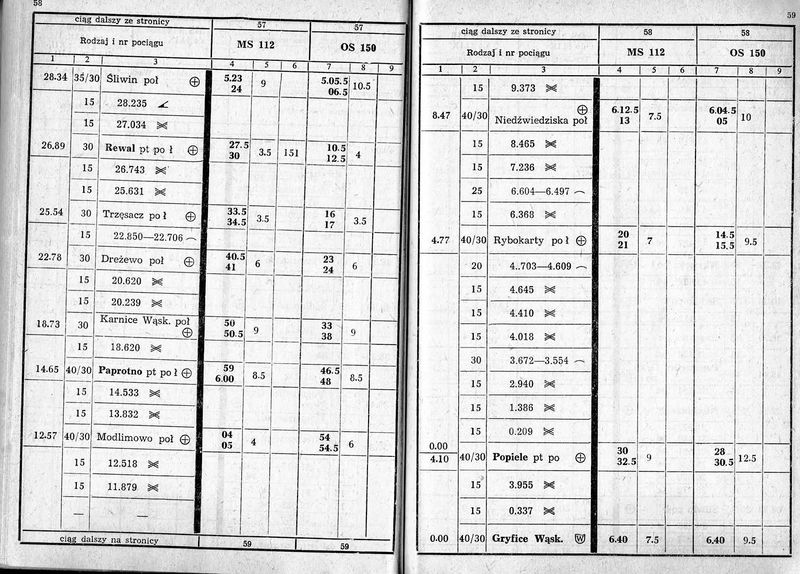 58
ciąg dalszy ze stronicy 57 57
Rodzaj i nr pociągu MS 112 OS 150
1 2 3 4 5 6 7 8 9
28.34 35/30 Śliwin poł 5.23 9 5.05.5 10.5
24 06.5
15 28.235
15 27.034
26.89 30 Rewal pt po ł 27.5 3.5 151 10.5 4
30 12.5
15 26.743
15 25.631
25.54 30 Trzęsacz po ł 33.5 3.5 16 3.5
34.5 17
15 22.850—22.706
22.78 30 Dreżewo poł 40.5 6 23 6
41 24
15 20.620
15 20.239
18.73 30 Karnice Wąsk. poł 50 9 33 9
50.5 38
15 18.620
14.65 40/30 Paprotno pt po ł 59 8.5 46.5 8.5
6.00 48
15 14.533
15 13.832
12.57 40/30 Modlimowo poł 04 4 54 6
05 54.5
15 12.518
15 11.879
— —
ciąg dalszy na stronicy 59 59
59
ciąg dalszy ze stronicy 58 58
Rodzaj i nr pociągu MS 112 OS 150
1 2 3 4 5 6 7 8 9
15 9.373
8.47 40/30 Niedźwiedziska poł 6.12.5 7.5 6.04.5 10
13 05
15 8.465
15 7.236
25 6.604—6.497
15 6.368
4.77 40/30 Rybokarty po ł 20 7 14.5 9.5
21 15.5
20 4..703—4.609
15 4.645
15 4.410
15 4.018
30 3.672—3.554
15 2.940
15 1.386
15 0.209
0.00
4.10 40/30 Popiele pt po 30 9 28 12.5
32.5 30.5
15 3.955
15 0.337
0.00 40/30 Gryfice Wąsk. W 6.40 7.5 6.40 9.5